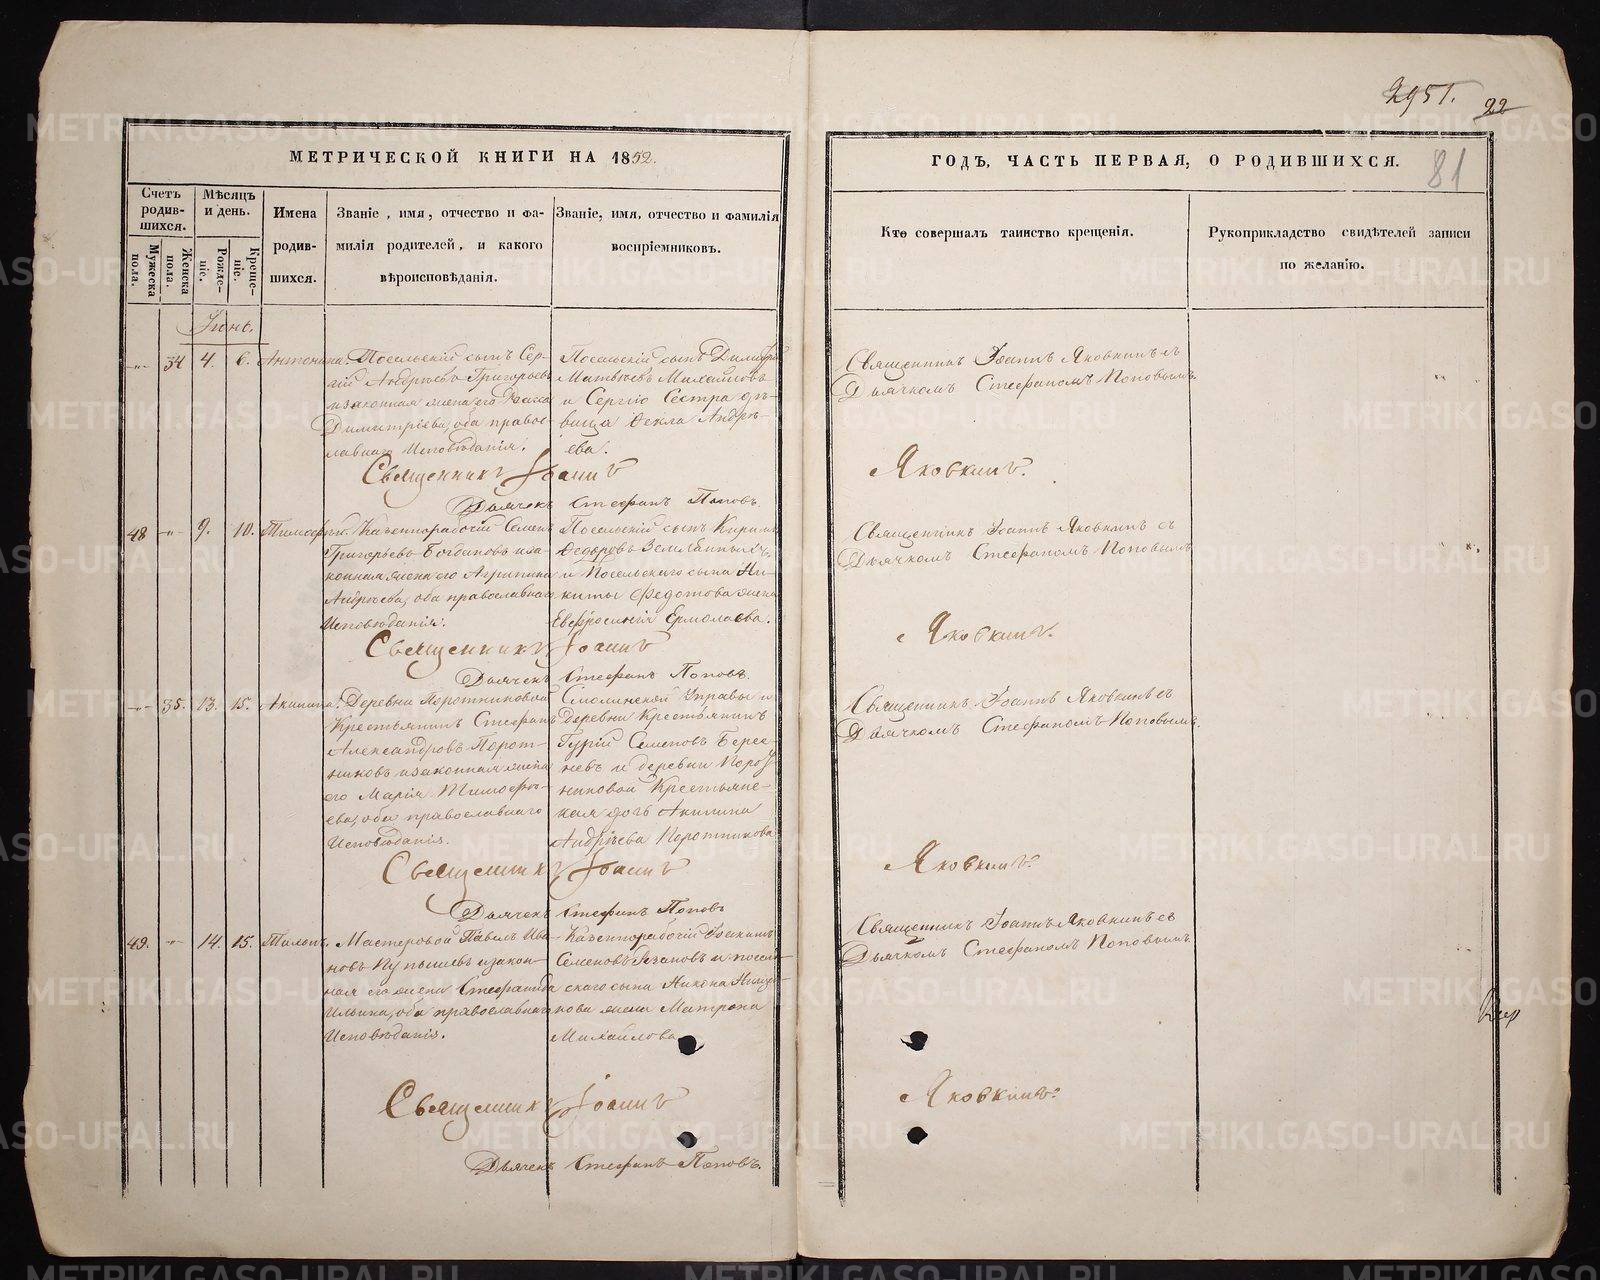 2951. 22
81
МЕТРИЧЕСКОЙ КНИГИ НА 1852.
ГОДЪ, ЧАСТЬ ПЕРВАЯ, О РОДИВШИХСЯ.
Счетъ родившихся.
Мужеска пола.
Женска пола.
Мѣсяцъ и день.
Рожденіе.
Крещеніе.
Имена родившихся.
Званіе, имя, отчество и фамилія родителей, и какого вѣроисповѣданія.
Званіе, имя, отчество и фамилія воспріемниковъ.
Кто совершалъ таинство крещенія.
Рукоприкладство свидѣтелей записи по желанію.
Іюнь.
34 4. 6. Антонина.
Посельскій сынъ Сер-
гій Андрѣевъ Григорьевъ
и законная жена его
Димитріева, оба правос-
лавнаго Исповѣданія.
Посельскій сынъ Димитрій
Матвѣевъ Михайловъ
и Сергія Сестра дѣ-
вица Ѳекла Андрѣ-
ева.
Священникъ Іоаннъ Яковкинъ съ
Дьячкомъ Стефаномъ Поповымъ.
Священникъ Іоаннъ Яковкинъ.
Дьячекъ Стефанъ Поповъ.
48 9. 10. Тимофей.
Казеннорабочій Семенъ
Григорьевъ Богдановъ и за-
конная жена его Агрипина
Андрѣева, оба православнаго
Исповѣданія.
Посельскій сынъ Кирилъ
Ѳедоровъ Земляныхъ,
и Посельскаго сына Ни-
киты Федотова жена
Евфросинія Ермолаева.
Священникъ Іоаннъ Яковкинъ съ
Дьячкомъ Стефаномъ Поповымъ
Священникъ Іоаннъ Яковкинъ.
Дьячекъ Стефанъ Поповъ.
35. 13. 15. Акилина.
Деревни Поротниковой
Крестьянинъ Стефанъ
Александровъ Порот-
никовъ и законная жена
его Марія Тимофѣ-
ева, оба православнаго
Исповѣданія.
Смолинской Управы и
Деревни Крестьянинъ
Гурій Семеновъ Берес-
невъ и деревни Порот
никовой Крестьянс-
кая дочь Акилина
Андрѣева Поротникова
Священникъ Іоаннъ Яковкинъ съ
Дьячкомъ Стефаномъ Поповымъ.
Священникъ Іоаннъ Яковкинъ.
Дьячекъ Стефанъ Поповъ
49. 14. 15.
Мастеровой Павелъ Ива-
новъ и закон-
ная его жена Стефанида
Ильина, оба православнаго
Исповѣданія.
Казеннорабочій Іоакимъ
Семеновъ и посель-
скаго сына Никона
кова жена Матрона
Михайлова
Священникъ Іоаннъ Яковкинъ съ
Дьячкомъ Стефаномъ Поповымъ.
Священникъ Іоаннъ Яковкинъ.
Дьячекъ Стефанъ Поповъ.
METRIKI.GASO-URAL.RU